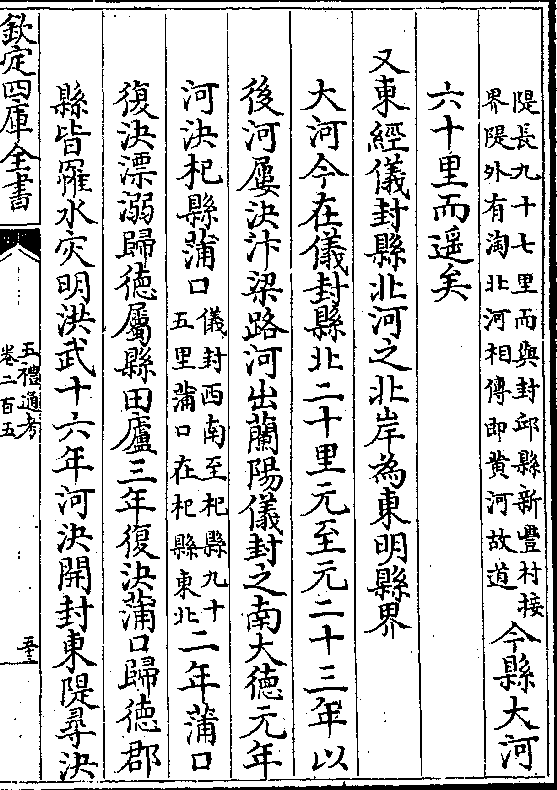 隄長九十七里而與封邱縣新豐村接
界隄外有淘北河相傳即黄河故道
今縣大河
六十里而遥矣
又東經儀封縣北河之北岸為東明縣界
大河今在儀封縣北二十里元至元二十三年以
後河屢決汴梁路河出蘭陽儀封之南大徳元年
河決杞縣蒲口
儀封西南至杞縣九十
五里蒲口在杞縣東北
二年蒲口
復決漂溺歸徳屬縣田廬三年復決蒲口歸徳郡
縣皆罹水灾明洪武十六年河決開封東隄尋決
欽定四庫全書
五禮通考
卷二百五